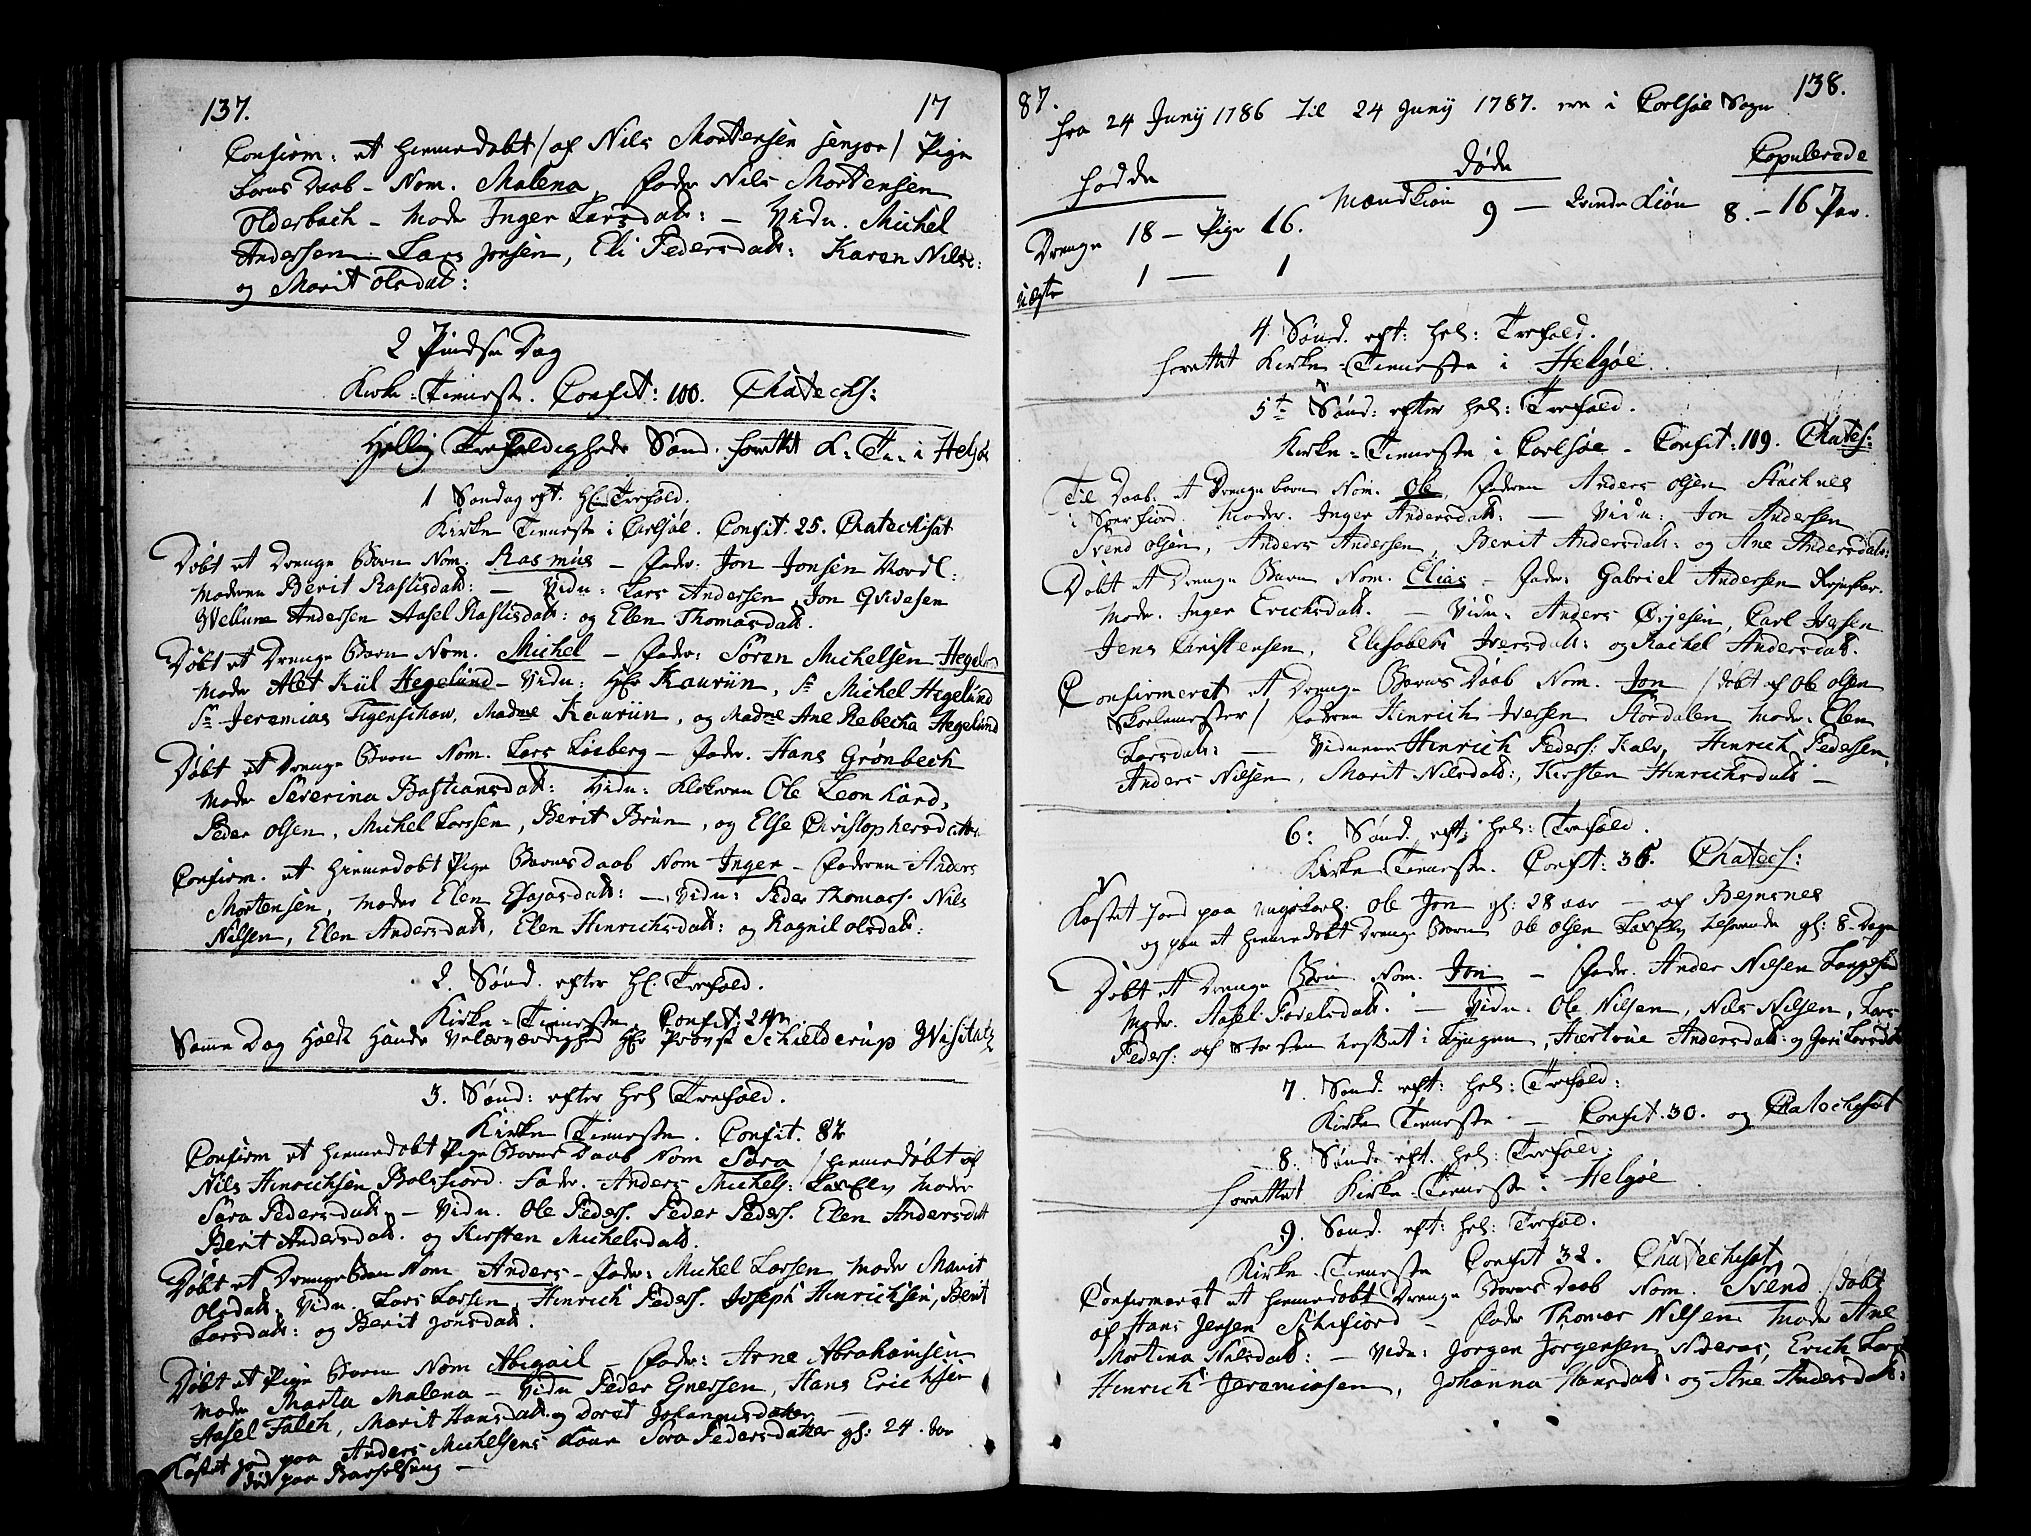 137. 17
Confirm: et hiemedøbt /af Nils Mortensen senjor/ Pige
barns Daab - Nom. Malena, Fader Nils Mortensen
Olderbach - Moder Inger Larsdatt: - Vidn. Michel
Andersen Lars Jonsen, Eli Pedersdatt: Karen Nilsd:
og Marit Olsdat:
2 Pindse Dag
Kirke-Tieneste. Confit: 100. Chatechs:
Hellig Trefoldigheds Sønd. forrettet K: T: i Helgøe
1 Søndag eft. Hl. Trefold.
Kirke Tieneste i Carlsøe. Confit. 25. Chatechisat
Døbt et Drenge Barn Nom. Rasmus - Fader: Jon Jonsen
Moderen Berit Rastisdatt: - Vidn: Lars Andersen, Jon
Wellum Andersen Aasel Rastisdatt: og Elen Thomasdatt.
Døbt et Drenge Barn Nom. Michel - Fader: Søren Michelsen Hegelund
Moder Alet Kiil Hegelund - Vidn: Hr Kauriin, Sr Michel Hegelund
Sr Jeremias Figenschow, Madme Kauriin, og Madme Ane Rebecha Hegelund
Døbt et Drenge Barn Nom. Lars Losberg - Fader. Hans Grønbech
Moder Severina Bastiansdatt: Vidn: Klokeren Ole Leonhard,
Peder Olsen, Michel Larssen, Berit Brun, og Else Christophersdatter
Confirm. et hiemedøbt Pige Barnes daab Nom Inger - Faderen Anders
Mortensen, Moder Elen Esajasdatt: - Vidn: Peder Thomass. Nils
Nilsen, Elen Andersdatt, Elen Hinrichsdatt: og Ragnil Olsdatt:
2. Sønd. efter Hl. Trefold.
Kirke-Tieneste. Confit: 24
Samme Dag holdt Hands Velærværdighed Hr Provst Schielderup Visitats
3. Sønd: efter Hel Trefold.
Kirke Tieneste. Confit. 82
Confirm et hiemedøbt Pige Barns Daab Nom Sara /hiemedøbt af
Nils Hinrichsen Balsfiord. Fader. Anders Michels: LaxElv Moder
Sara Pedersdatt - Vidn. Ole Peders. Peder Peders. Elen Andersdatt
Berit Andersdatt. og Kirsten Michelsdatt.
Døbt et Drenge Barn Nom Anders - Fader: Michel Larsen Moder Marit
Olsdatt. Vidn. Lars Larsen Hinrich Peders. Joseph Hinrichsen, Berit
Larsdatt: og Berit Jonsdatt.
Døbt et Pige Barn Nom Abigail - Fader: Arne Abrahamsen
Moder Marta Malena - Vidn Peder Enersen, Hans Erichsen
Aasel Falch, Marit Hansdatt. og Doret Johannisdatter
Kastet Jord paa Anders Michelsens Kone Sara Pedersdatter gl: 24. Aar
død paa Barselseng -
87. 138.
fra 24 Junij 1786 til 24 Junij 1787. ere i Carlsøe Sogn
Fødde Døde Copulerede
Mandkiøn 9 - Qvindekiøn 8. - 16 Par.
Drenge 18 - Pige 16.
uægte 1 - 1
4. Sønd. eft: Hel: Trefold.
forrettet Kirke-Tieneste i Helgøe.
5te Sønd: efter Hel: Trefold.
Kirke-Tieneste i Carlsøe - Confit: 109. Chates:
Til Daab: et Drenge barn Nom. Ole, Faderen Anders Olsen Stachnes
i Sørfiord. Moder. Inger Andersdatt: - Vidn: Jon Andersen
Svend Olsen, Anders Andersen, Berit Andersdatt: og Ane Andersdatt:
Døbt et Drenge Barn Nom. Elias - Fader: Gabriel Andersen
Moder. Inger Erichsdatt. - Vidn: Anders Ørjesen, Carl Iversen
Jens Christensen, Elisabeth Iversdatt: og Rachel Andersdatt.
Confirmeret et Drenge Barns Daab Nom. Jon /døbt af Ole Olsen
Skolemester/ Faderen Hinrich Iversen Stordalen Moder: Elen
Larsdatt: - Vidnerne Hinrich Peders: Kalv, Hinrich Pedersen,
Anders Nilsen, Marit Nilsdatt:, Kirsten Hinrichsdatt -
6: Sønd. eft: Hel: Trefold.
Kirke Tieneste. Confit: 36. Chatecs:
Kastet Jord paa ungkarl. Ole Jon gl: 28 aar - af Bejnsnes
og paa et hiemedøbt Drenge Barn Ole Olsen LaxElv gl: 8 Dage
Døbt et Drenge Barn Nom. Jon - Fader. Anders Nilsen Langesund
Moder. Aasel Povelsdatt. - Vidn: Ole Nilsen, Nils Nilsen, Lars
Peders: af i Lyngen, Hertvue Andersdatt: og Guri Larsdatt
7. Sønd. eft: Hel: Trefold:
Kirke Tieneste - Confit. 30. og Chatechisat
8. Sønd: eft. Hel: Trefold:
forrettet Kirke-Tieneste i Helgøe
9. Sønd. eft: Hel: Trefold.
Kirke-Tieneste Confit 32. Chatechisat
Confirmeret et hiemedøbt Drenge Barns Daab Nom. Svend /døbt
af Hans Jensen - Fader Thomas Nilsen Moder Ane
Martina Nilsdatt: - Vidn: Jørgen Jørgensen Nderas, Erich Lars
Hinrich Jeremiasen, Johanna Hansdatt: og Ane Andersdatt: